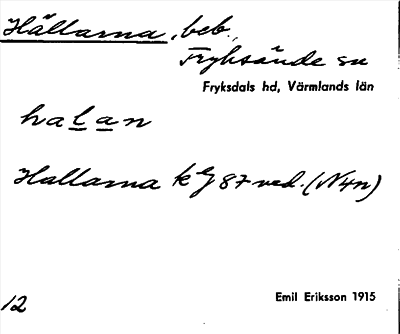 Hällarna, beb.,
Fryksände sn
Fryksdals hd, Värmlands län
halan
Hallarna kg 87 ned. (N4n)
12
Emil Eriksson 1915